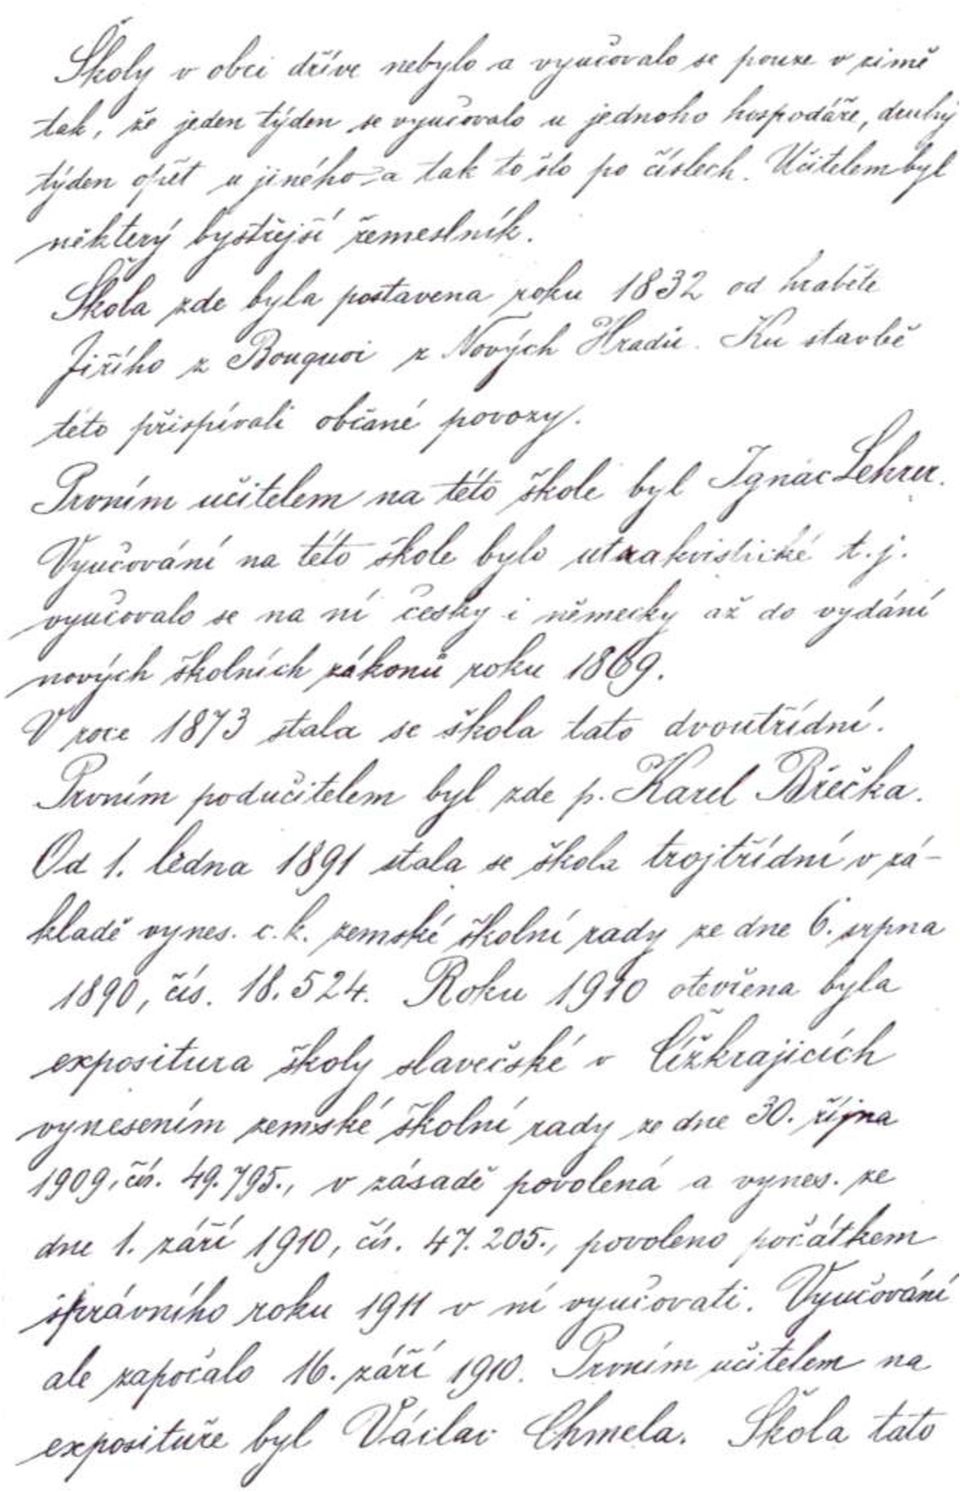 Školy v obci dříve nebylo a vyučovalo se pouze v zimě
tak, že jeden týden se vyučovalo u jednoho hospodáře, druhý
týden opět u jiného a tak to šlo po číslech. Učitelem byl
některý bystřejší řemeslník.
Škola zde byla postavena roku 1832 od hraběte
Jiřího z Bouquoi z Nových Hradů. Ku stavbě
této přispívali občané povozy.
Prvním učitelem na této škole byl Ignác Lehrer.
Vyučování na této škole bylo utrakvistické t.j.
vyučovalo se na ní česky i německy až do vydání
nových školních zákonů roku 1869.
V roce 1873 stala se škola tato dvoutřídní.
Prvním podučitelem byl zde p. Karel Břečka.
Od 1. ledna 1891 stala se škola trojtřídní v zá-
kladě vynes. c. k. zemské školní rady ze dne 6. srpna
1890, čís. 18.524. Roku 1910 otevřena byla
expositura školy slavečské v Čížkrajicích
vynesením zemské školní rady ze dne 30. října
1909, čís. 49.795., v zásadě povolená a vynes. ze
dne 1. září 1910, čís. 47.205., povoleno počátkem
správního roku 1911 v ní vyučovati. Vyučování
ale započalo 16. září 1910. Prvním učitelem na
exposituře byl Václav Chmela. Škola tato